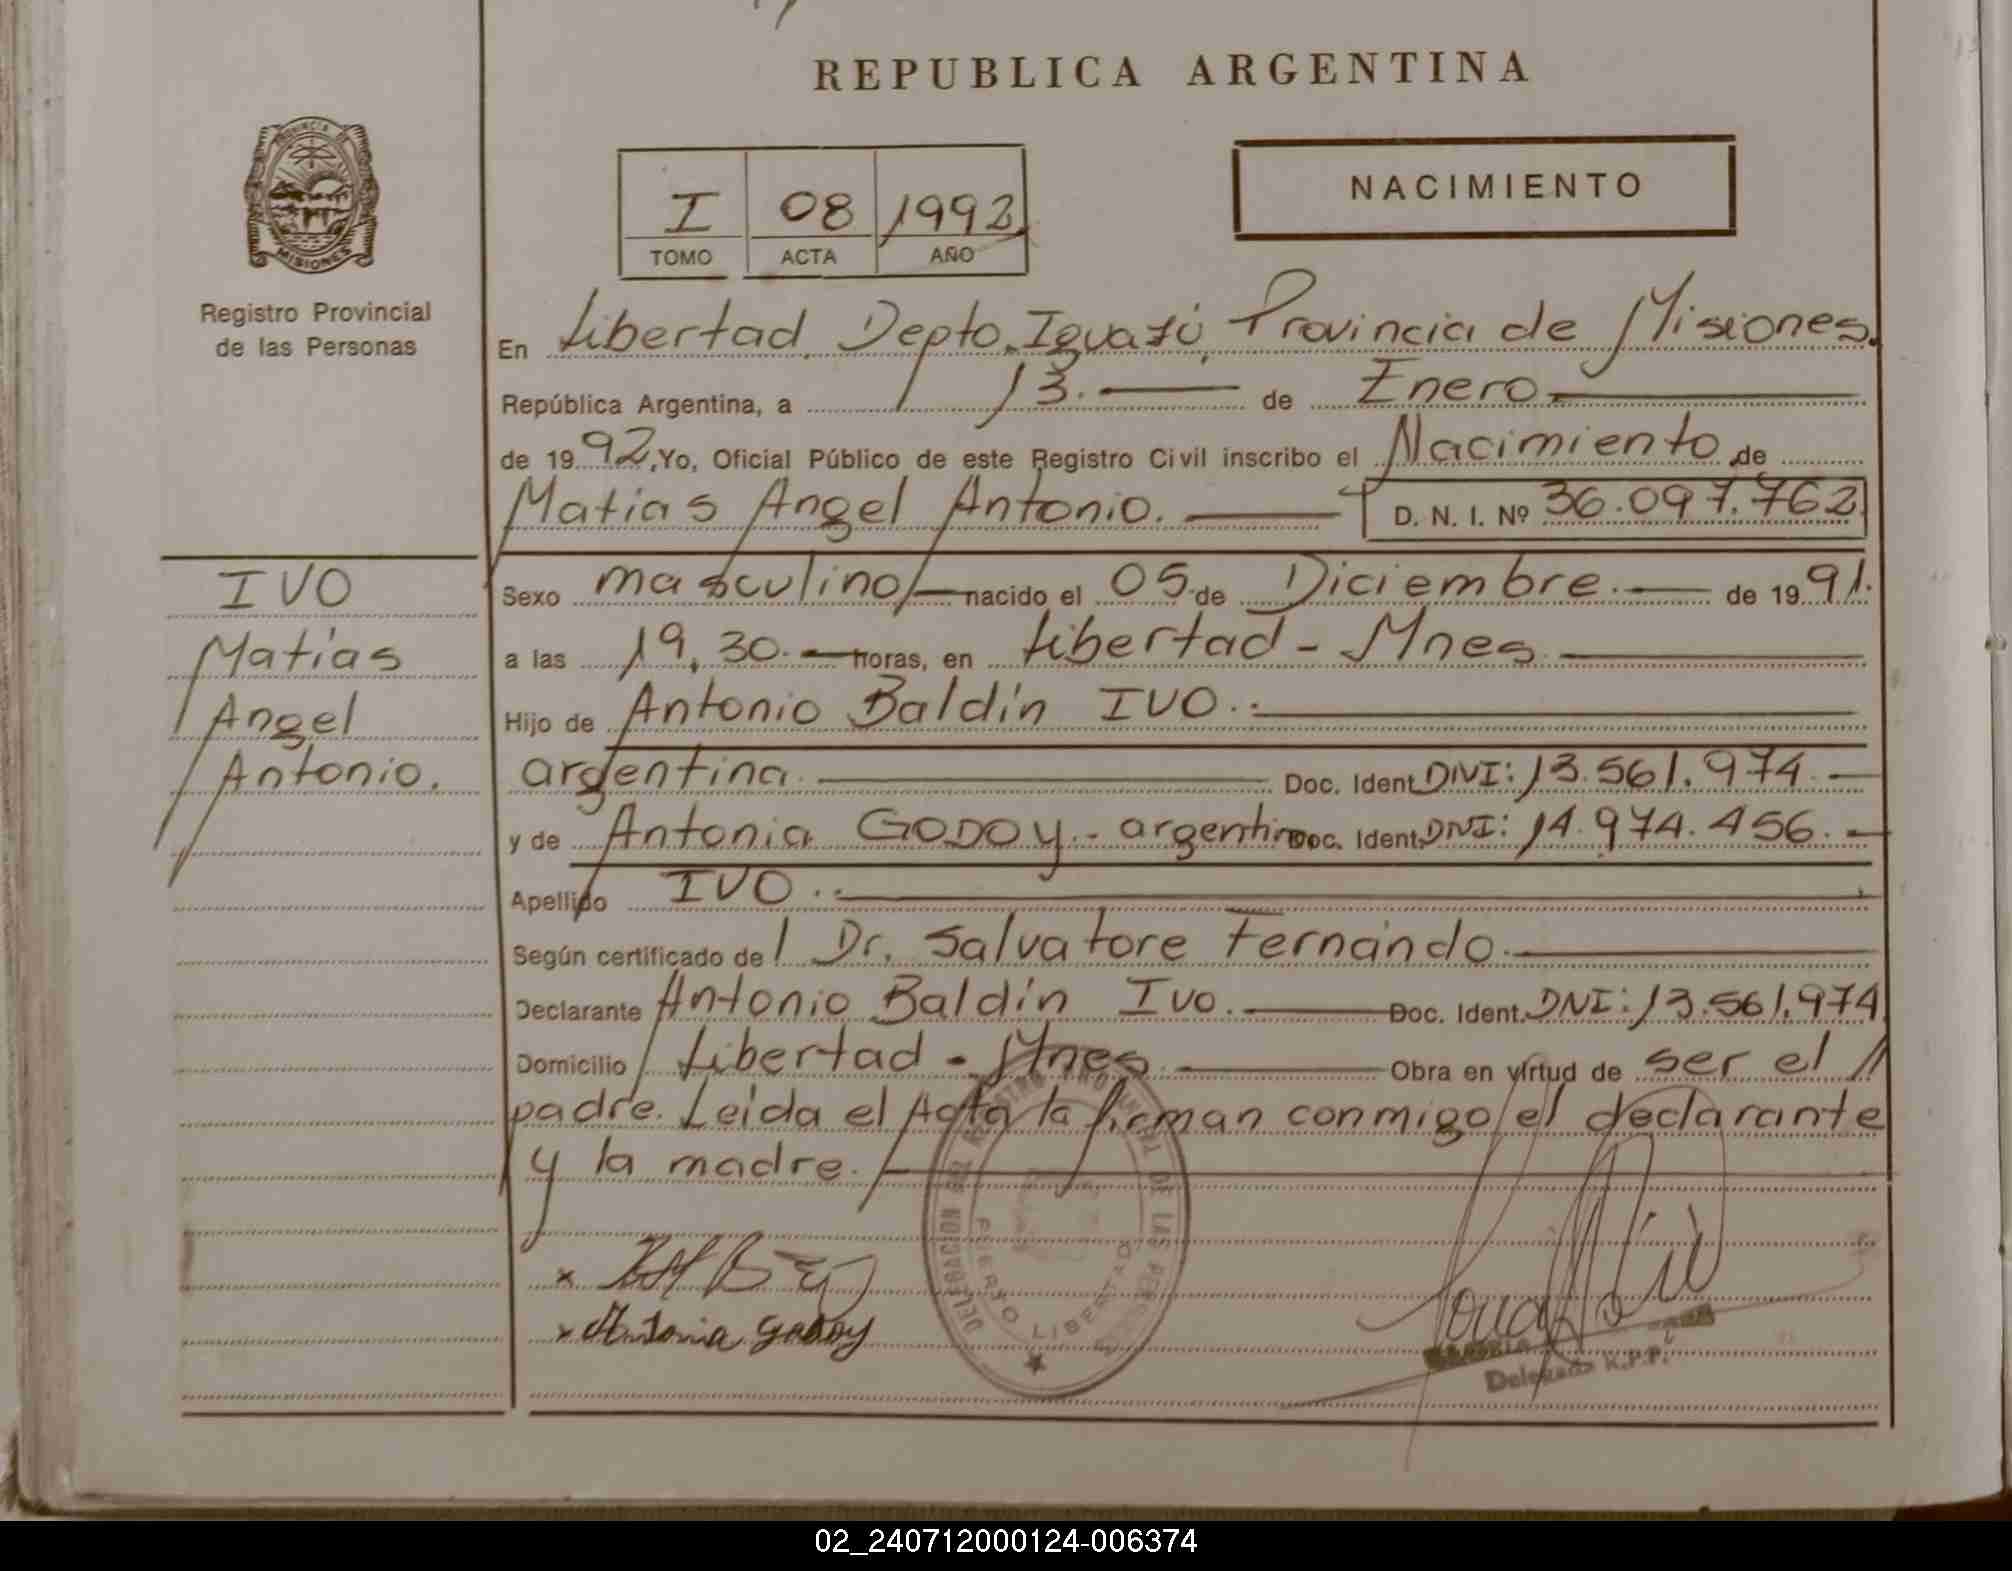 REPUBLICA ARGENTINA
PROVINCIA DE
MISIONES
Registro Provincial
de las Personas
I 08 1992
TOMO ACTA AÑO
NACIMIENTO
En Libertad, Depto. Iguazú, Provincia de Misiones.
República Argentina, a 13. de Enero
de 1992, Yo, Oficial Público de este Registro Civil inscribo el Nacimiento de
Matías Angel Antonio. D. N. I. Nº 36.097.762
Sexo masculino nacido el 05 de Diciembre. de 1991.
a las 19,30. horas, en Libertad - Mnes.
Hijo de Antonio Baldín IVO.
argentina. Doc. Ident. DNI: 13.561.974.
y de Antonia GODOY - argentina Doc. Ident. DNI: 14.974.456.
Apellido IVO.
Según certificado de Dr. Salvatore Fernándo.
Declarante Antonio Baldín Ivo. Doc. Ident. DNI: 13.561.974
Domicilio Libertad - Mnes. Obra en virtud de ser el //
padre. Leida el Acta la firman conmigo el declarante
y la madre.
IVO
Matías
Angel
Antonio.
x
x Antonia Godoy
DELEGACION DEL REGISTRO PROVINCIAL DE LAS PERSONAS
PUERTO LIBERTAD
Delegada R.P.P.
02_240712000124-006374